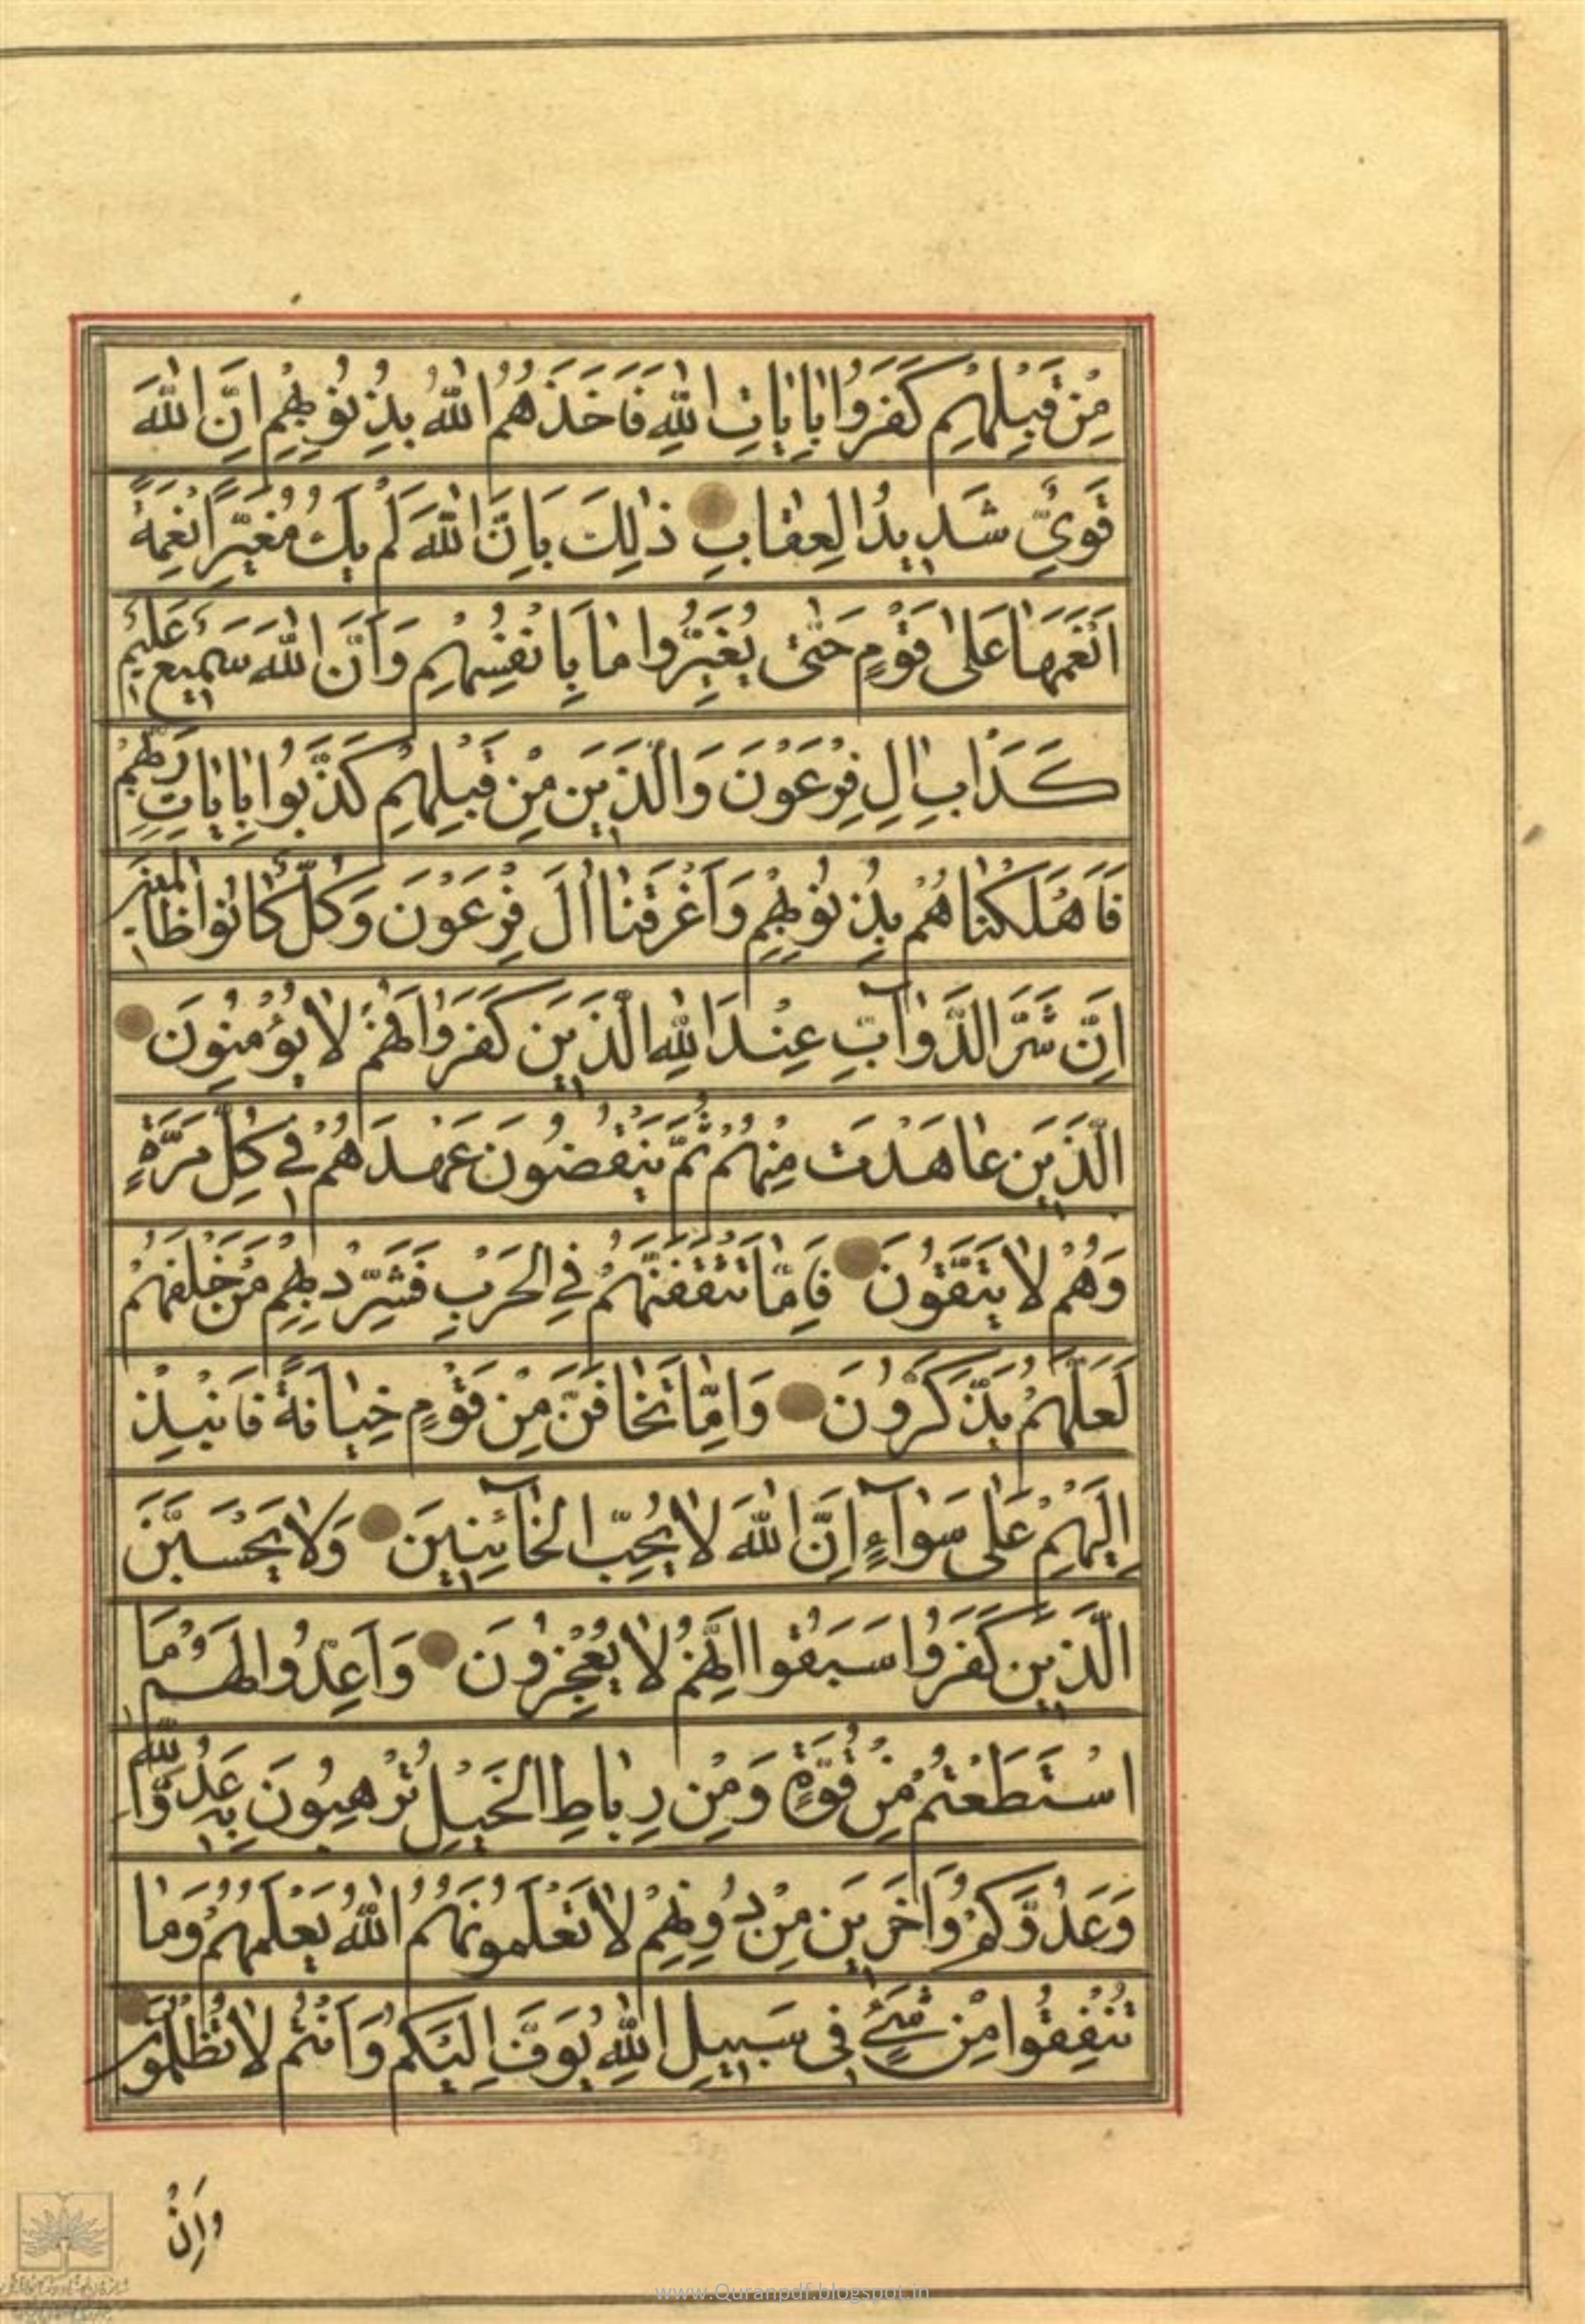 مِنْ قَبْلِهِمْ كَفَرُوا بِاٰيٰاتِ اللّٰهِ فَاَخَذَهُمُ اللّٰهُ بِذُنُوبِهِمْ اِنَّ اللّٰهَ
قَوِيٌّ شَدِيدُ الْعِقٰابِ ذٰلِكَ بِاَنَّ اللّٰهَ لَمْ يَكُ مُغَيِّرًا نِعْمَةً
اَنْعَمَهٰا عَلىٰ قَوْمٍ حَتّٰى يُغَيِّرُوا مٰا بِاَنْفُسِهِمْ وَاَنَّ اللّٰهَ سَمِيعٌ عَلِيمٌ
كَدَأْبِ اٰلِ فِرْعَوْنَ وَالَّذِينَ مِنْ قَبْلِهِمْ كَذَّبُوا بِاٰيٰاتِ رَبِّهِمْ
فَاَهْلَكْنٰاهُمْ بِذُنُوبِهِمْ وَاَغْرَقْنٰا اٰلَ فِرْعَوْنَ وَكُلٌّ كٰانُوا ظٰالِمِينَ
اِنَّ شَرَّ الدَّوٰآبِّ عِنْدَ اللّٰهِ الَّذِينَ كَفَرُوا فَهُمْ لٰا يُؤْمِنُونَ
الَّذِينَ عٰاهَدْتَ مِنْهُمْ ثُمَّ يَنْقُضُونَ عَهْدَهُمْ فِي كُلِّ مَرَّةٍ
وَهُمْ لٰا يَتَّقُونَ فَاِمّٰا تَثْقَفَنَّهُمْ فِي الْحَرْبِ فَشَرِّدْ بِهِمْ مَنْ خَلْفَهُمْ
لَعَلَّهُمْ يَذَّكَّرُونَ وَاِمّٰا تَخٰافَنَّ مِنْ قَوْمٍ خِيٰانَةً فَانْبِذْ
اِلَيْهِمْ عَلىٰ سَوٰآءٍ اِنَّ اللّٰهَ لٰا يُحِبُّ الْخٰآئِنِينَ وَلٰا يَحْسَبَنَّ
الَّذِينَ كَفَرُوا سَبَقُوا اِنَّهُمْ لٰا يُعْجِزُونَ وَاَعِدُّوا لَهُمْ مَا
اسْتَطَعْتُمْ مِنْ قُوَّةٍ وَمِنْ رِبٰاطِ الْخَيْلِ تُرْهِبُونَ بِهِ عَدُوَّ اللّٰهِ
وَعَدُوَّكُمْ وَاٰخَرِينَ مِنْ دُونِهِمْ لٰا تَعْلَمُونَهُمُ اللّٰهُ يَعْلَمُهُمْ وَمٰا
تُنْفِقُوا مِنْ شَيْءٍ فِي سَبِيلِ اللّٰهِ يُوَفَّ اِلَيْكُمْ وَاَنْتُمْ لٰا تُظْلَمُونَ
وَاِنْ
www.Quranpdf.blogspot.in